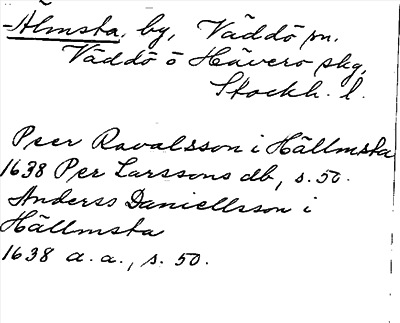 -Älmsta, by, Väddö sn.
Väddö o Hävero skg,
Stockh. l.
Peer Ravalsson i Hällmsta
1638 Per Larssons db, s. 50.
Anders Daniellsson i
Hällmsta
1638 a. a., s. 50.